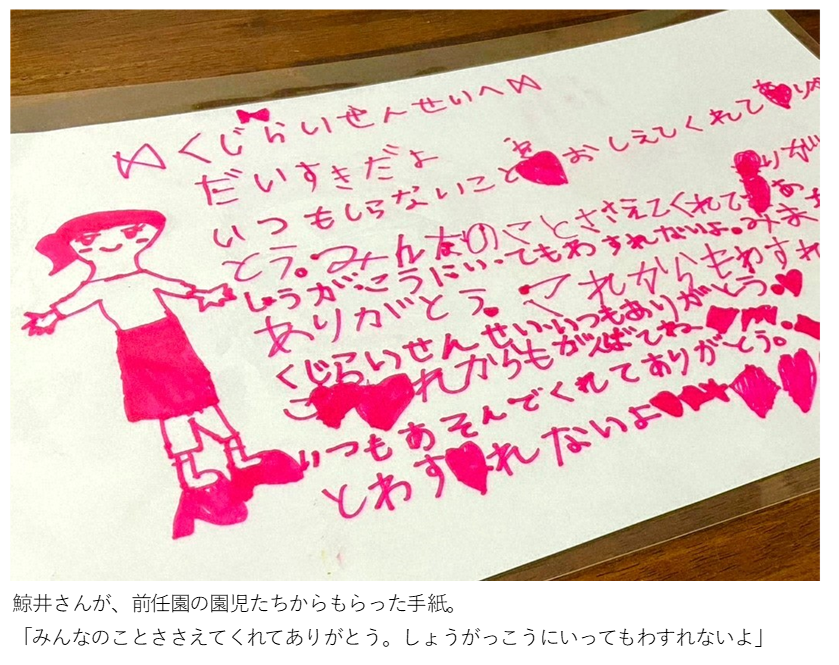 くじらいせんせいへ
だいすきだよ
いつもしらないことを おしえてくれてあり
とう。みんなのことささえてくれてあ
しょうがっこうにいってもわすれないよ。みま
ありがとう。これからもわすれ
くじらいせんせいいつもありがとう。
これからもがんばてね
いつもあそんでくれてありがとう。
とわすれないよ
鯨井さんが、前任園の園児たちからもらった手紙。
「みんなのことささえてくれてありがとう。しょうがっこうにいってもわすれないよ」